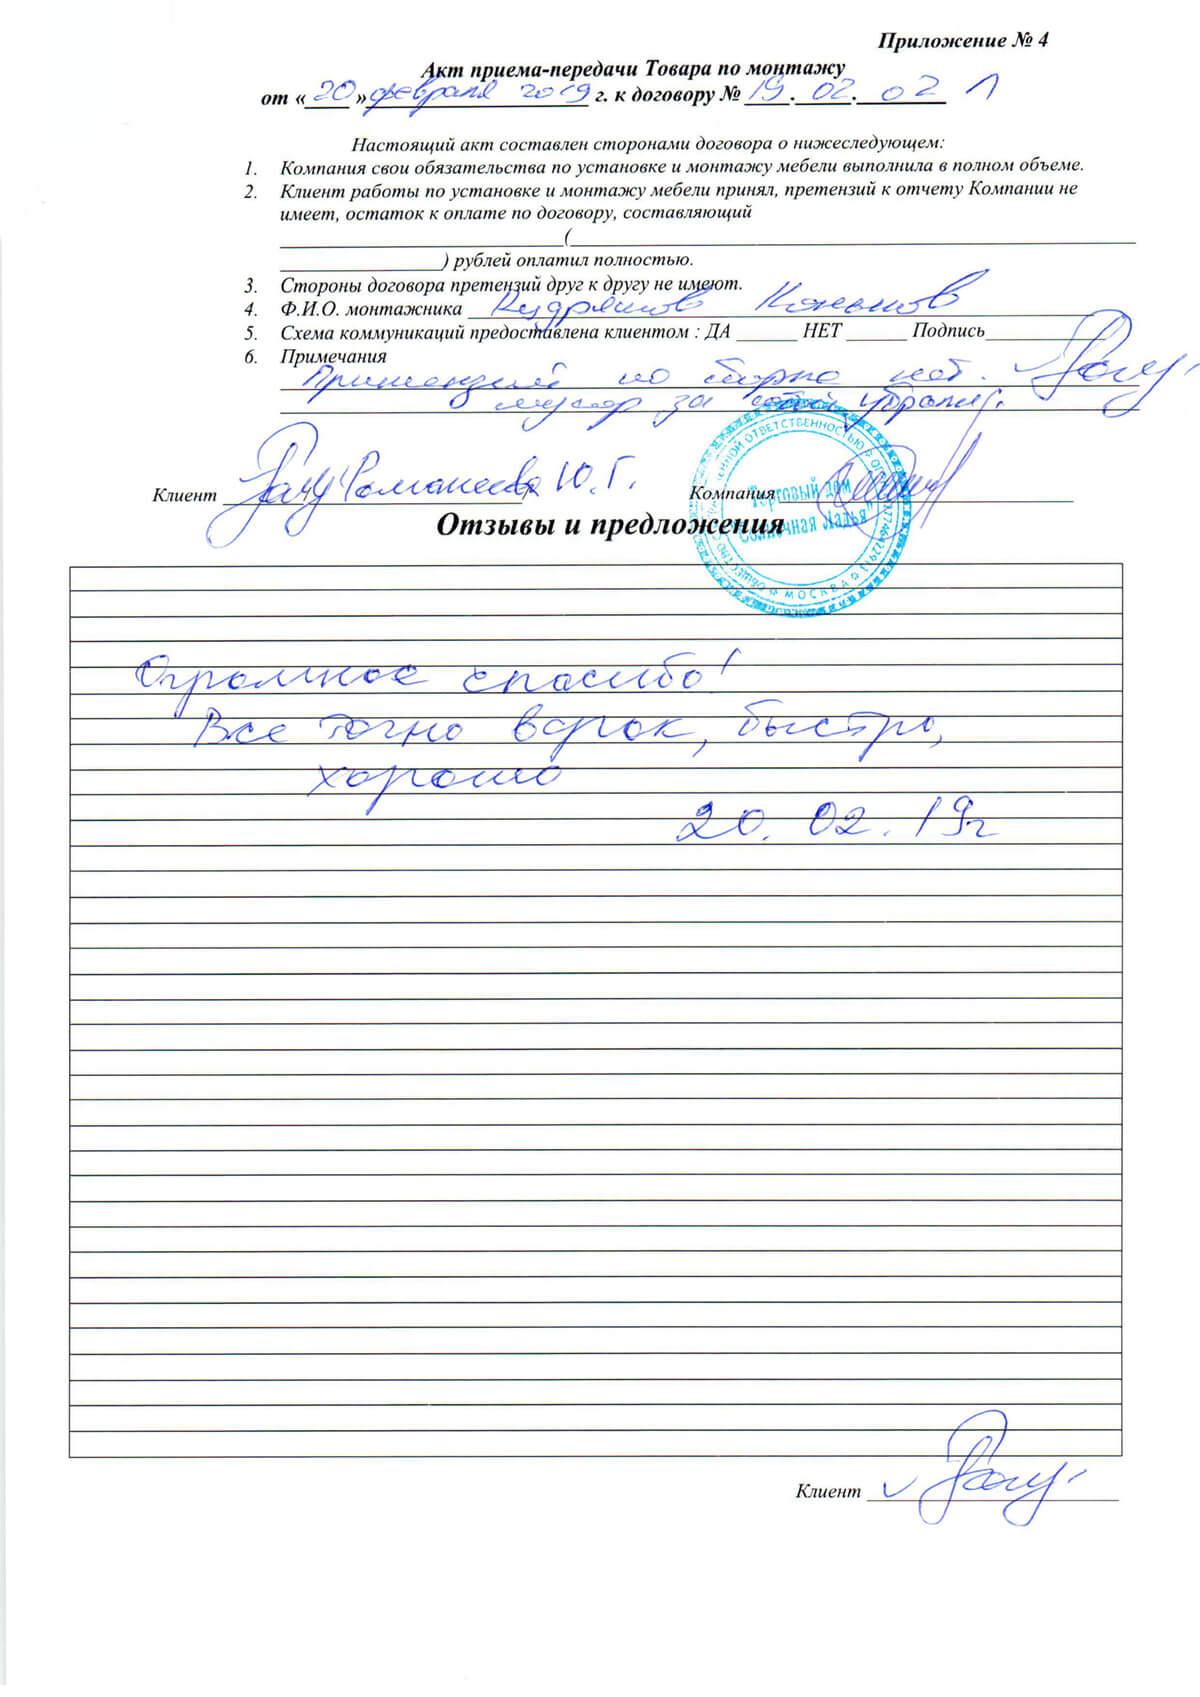 Приложение № 4
Акт приема-передачи Товара по монтажу
от «20» февраля 2019 г. к договору № 19.02.02 1
Настоящий акт составлен сторонами договора о нижеследующем:
1. Компания свои обязательства по установке и монтажу мебели выполнила в полном объеме.
2. Клиент работы по установке и монтажу мебели принял, претензий к отчету Компании не
имеет, остаток к оплате по договору, составляющий
(
) рублей оплатил полностью.
3. Стороны договора претензий друг к другу не имеют.
4. Ф.И.О. монтажника Кудряшов
5. Схема коммуникаций предоставлена клиентом : ДА НЕТ Подпись
6. Примечания
Притензий по сборке нет.
мусор за собой убрали.
Клиент Ю.Г. Компания
"Торговый дом
"Солнечная Ладья"
МОСКВА
Отзывы и предложения
Огромное спасибо!
Все точно в срок, быстро,
хорошо
20.02.19г
Клиент